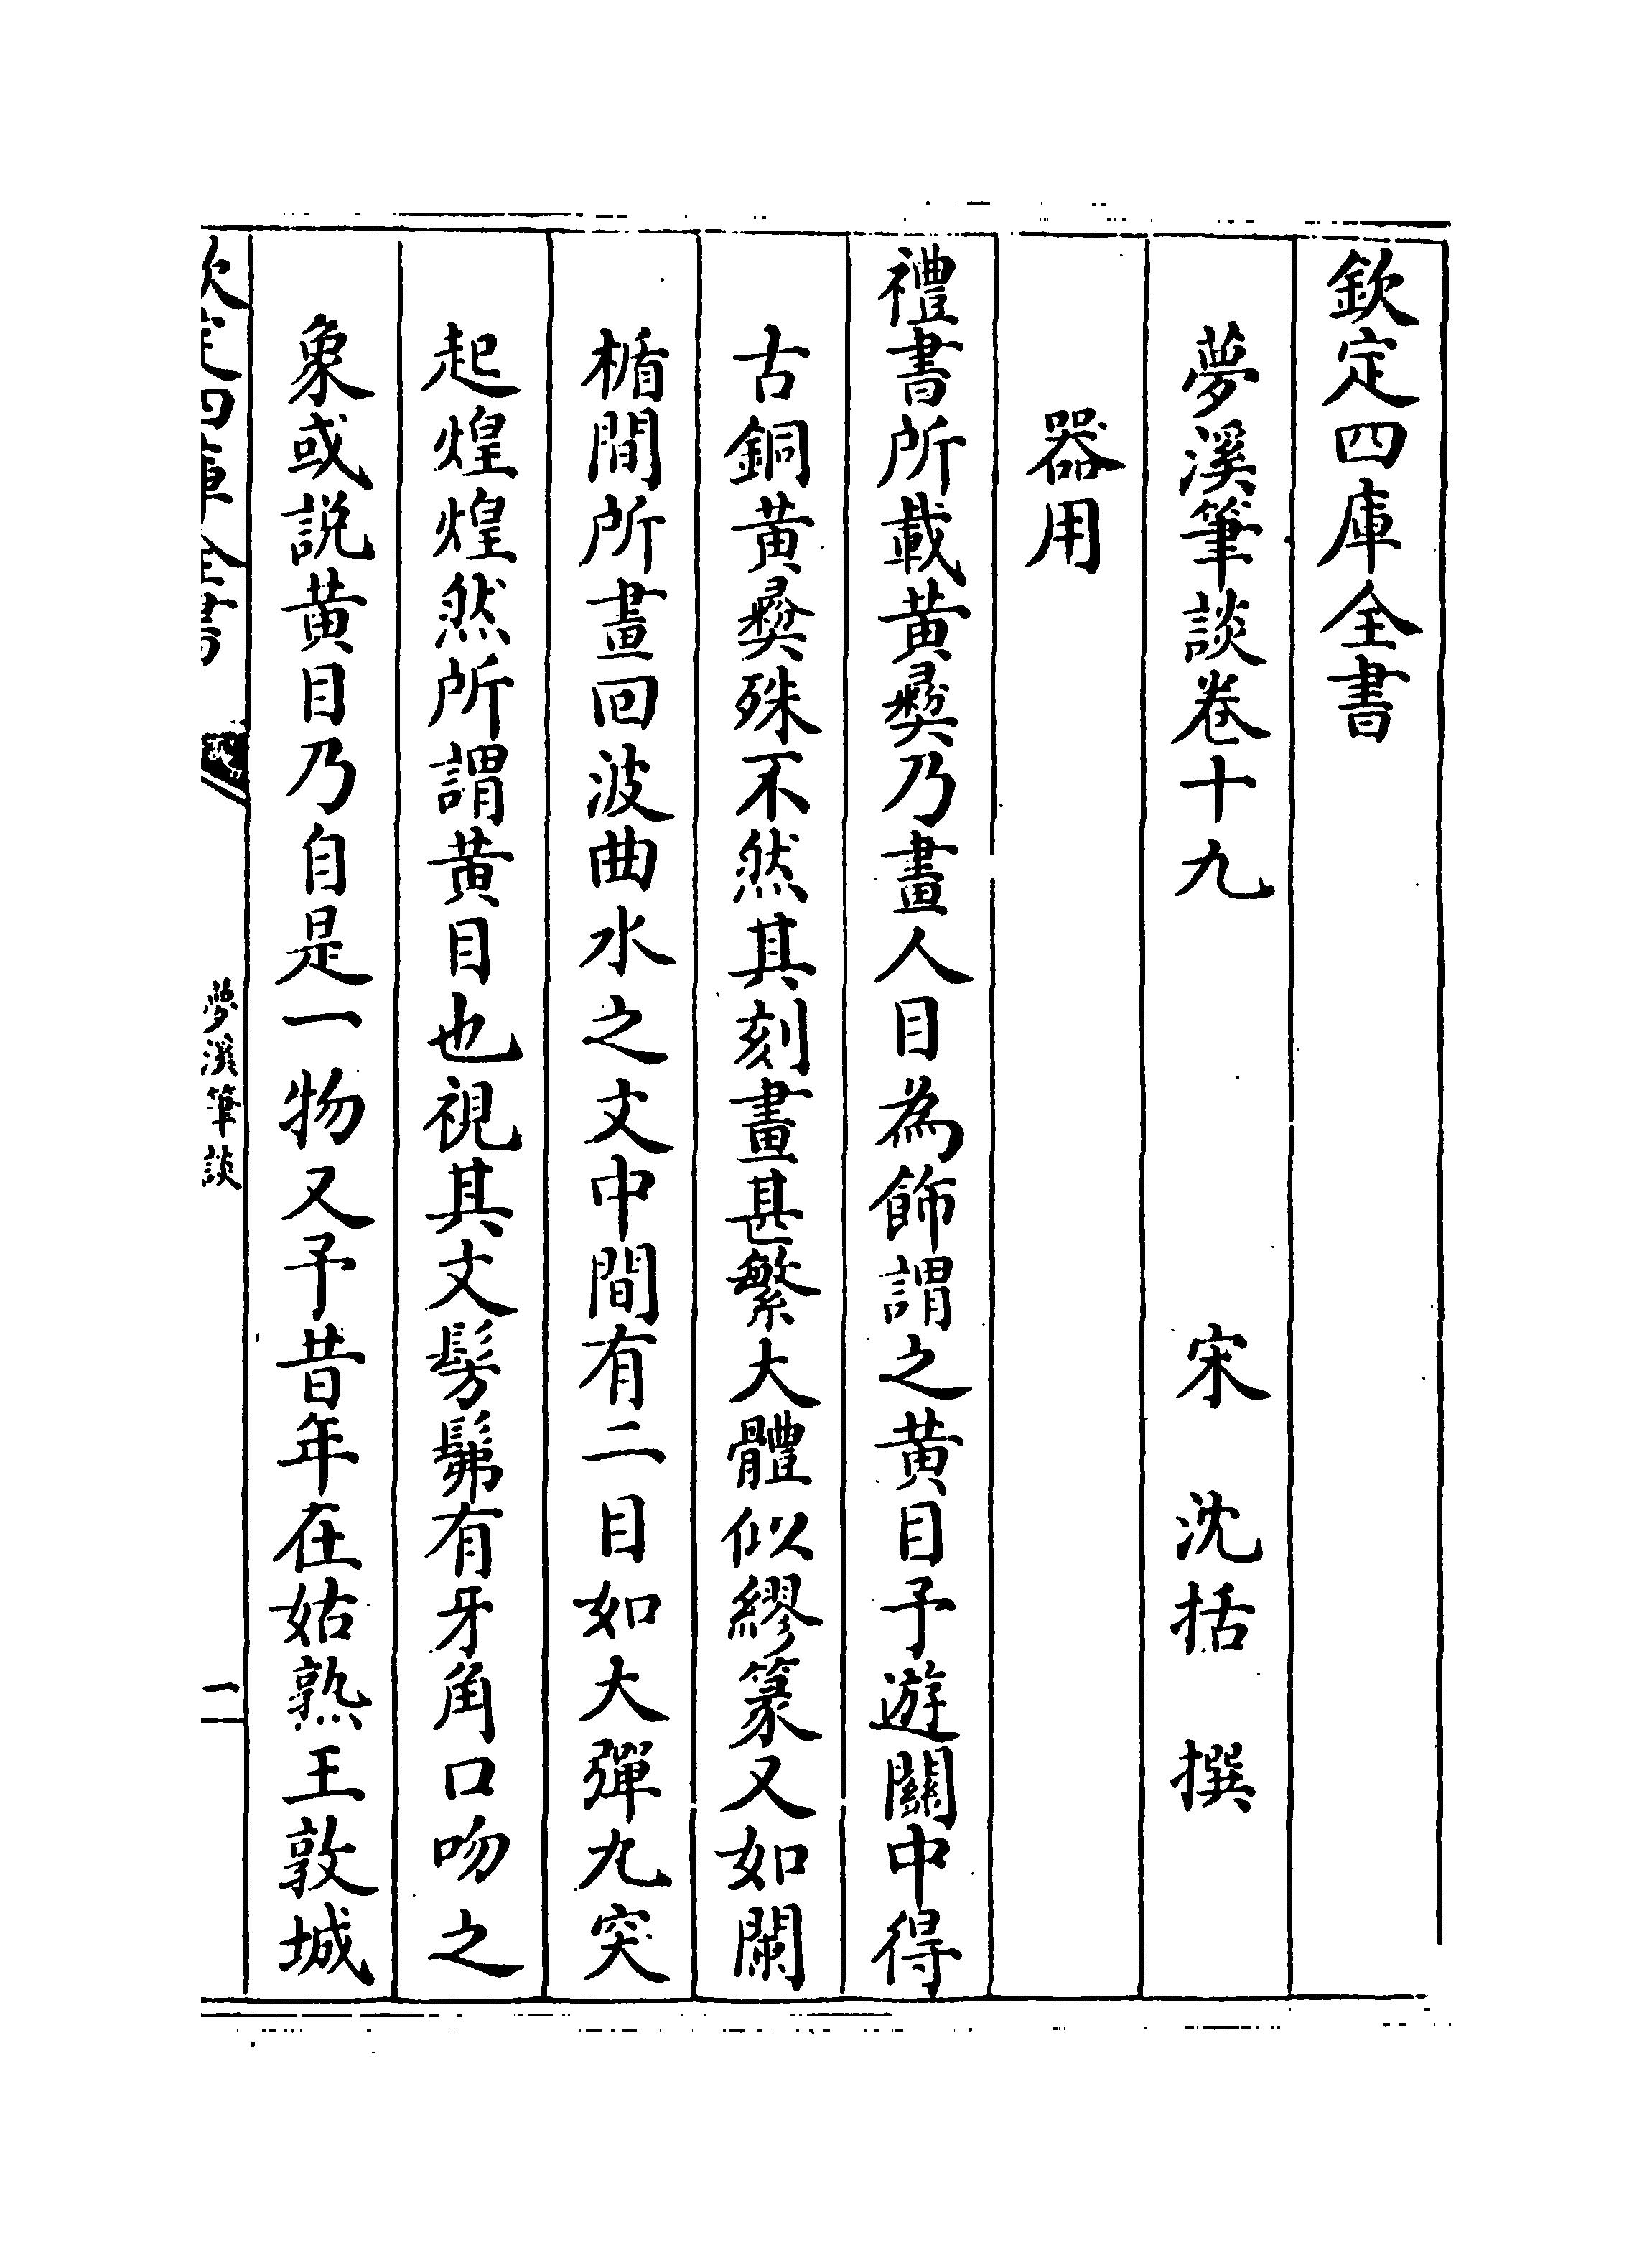 欽定四庫全書
夢溪筆談卷十九　宋　沈括　撰
器用
禮書所載黃彜乃畫人目為飾謂之黃目予遊關中得
古銅黃彜殊不然其刻畫甚繁大體似繆篆又如闌
楯間所畫回波曲水之文中間有二目如大彈丸突
起煌煌然所謂黃目也視其文髣髴有牙角口吻之
象或説黃目乃自是一物又予昔年在姑熟王敦城
欽定四庫全書　夢溪筆談　一